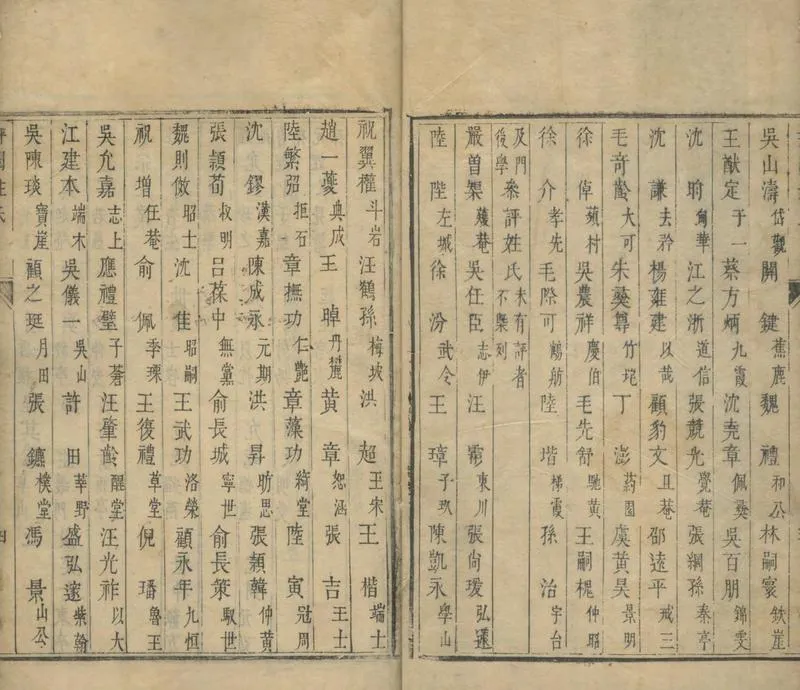 吳山濤 岱觀 關鍵 蕉鹿 魏禮 和公 林嗣寰 鉄崖
王猷定 于一 蔡方炳 九霞 沈堯章 佩彛 吳百朋 錦雯
沈 甸華 江之浙 道信 張競光 覺菴 張綱孫 秦亭
沈謙 去矜 楊雍建 以哉 顧豹文 且菴 邵遠平 戒三
毛奇齡 大可 朱彛尊 竹垞 丁澎 葯園 虞黄昊 景明
徐倬 蘋村 吳農祥 慶伯 毛先舒 馳黄 王嗣槐 仲昭
徐介 孝先 毛際可 鶴舫 陸堦 梯霞 孫治 宇台
及門後學 叅評姓氏 未有評者不槩列
嚴曽榘 菴 吳任臣 志伊 汪霦 東川 張尚瑗 弘蘧
陸陛 左城 徐汾 武令 王璋 子玖 陳凱永 學山
祝翼權 斗岩 汪鶴孫 梅坡 洪超 王宋 王楷 端士
趙一夔 典成 王晫 丹麓 黄章 恕涵 張吉 王士
陸繁弨 拒石 章撫功 仁艷 章藻功 綺堂 陸寅 冠周
沈鏐 漢嘉 陳成永 元期 洪昇 昉思 張頴韓 仲黄
張頴荀 叔明 吕葆中 無黨 俞長城 寧世 俞長策 馭世
魏則儆 昭士 沈佳 昭嗣 王武功 洛榮 顧永年 九恒
祝增 任菴 俞佩 季瑮 王復禮 草堂 倪璠 魯王
吳允嘉 志上 應禮璧 子蒼 汪肇齡 醒堂 汪光祚 以大
江建本 端木 吳儀一 吳山 許田 莘野 盛弘邃 紫翰
吳陳琰 寶崖 顧之珽 月田 張鑣 樸堂 馮景 山公